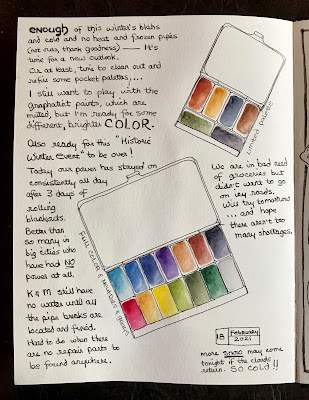 enough of this winter's blahs
and cold and no heat and frozen pipes
(not ours, thank goodness) — It's
time for a new outlook.
Or at least, time to clean out and
refill some pocket palettes,...
I still want to play with the
graphatint paints, which are
muted, but I'm ready for some
different, brighter COLOR.
Also ready for this "Historic
Winter Event" to be over!
Today our power has stayed on
consistently all day
after 3 days of
rolling
blackouts.
Better than
so many in
big cities who
have had NO
power at all.
K & M still have
no water until all
the pipe breaks are
located and fixed.
Hard to do when there
are no repair parts to
be found anywhere.
Limited palette
Full color & neutrals & greens
We are in bad need
of groceries but
didn't want to go
on icy roads.
Will try tomorrow
... and hope
there aren't too
many shortages.
18 February
2021
more snow may come
tonight if the clouds
return. SO COLD!!